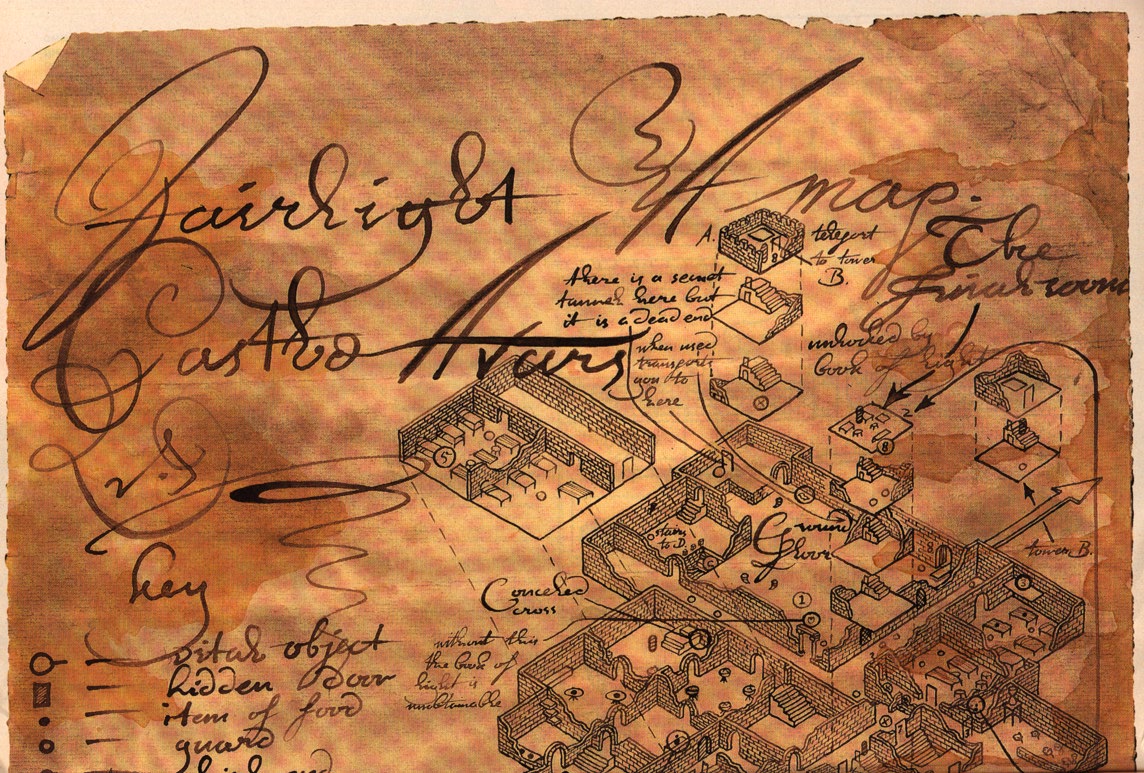 Fairlight
A map.
Castle Avars
The
Final room
A.
teleport
to tower
B.
there is a secret
tunnel here but
it is a dead end
when used
transports
you to
here
unlocked by
book of light
2
8
5
stairs
to D.
Ground
floor
1
tower B.
Concealed
cross
without this
the book of
light is
unobtainable
key
vital object
hidden door
item of food
guard